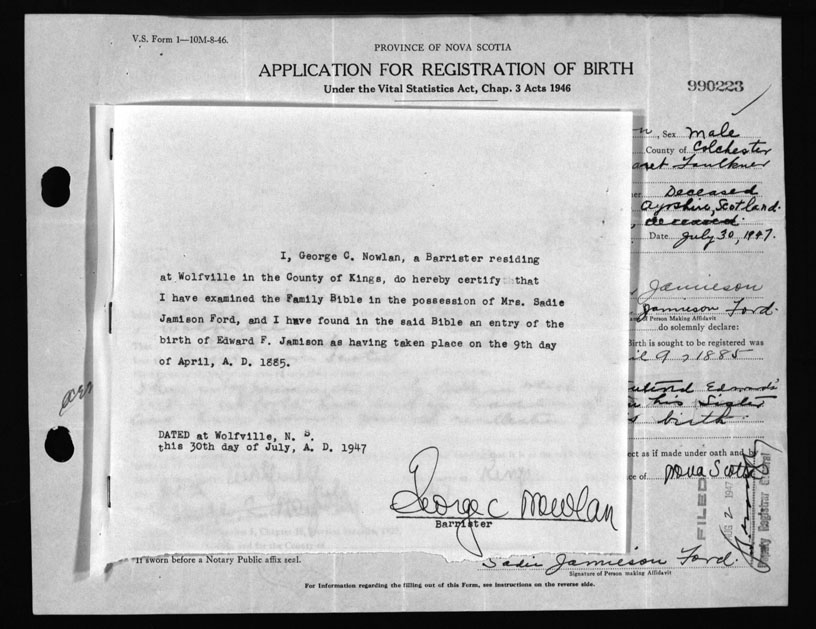 V.S. Form 1—10M-8-46.
PROVINCE OF NOVA SCOTIA
APPLICATION FOR REGISTRATION OF BIRTH
Under the Vital Statistics Act, Chap. 3 Acts 1946
990223
, Sex Male
County of Colchester
aret Faulkner
Deceased
Ayrshire, Scotland.
deceased.
Date July 30, 1947.
I, George C. Nowlan, a Barrister residing
at Wolfville in the County of Kings, do hereby certify that
I have examined the Family Bible in the possession of Mrs. Sadie
Jamison Ford, and I have found in the said Bible an entry of the
birth of Edward F. Jamison as having taken place on the 9th day
of April, A. D. 1885.
DATED at Wolfville, N. S.
this 30th day of July, A. D. 1947
George C Nowlan
Barrister
Jamieson
Jamieson Ford.
of Person Making Affidavit
do solemnly declare:
Birth is sought to be registered was
il 9, 1885
Edward's
his Sister
birth.
ect as if made under oath and
ce of Nova Scotia
FILED
AUG 2 1947
Deputy Registrar General
If sworn before a Notary Public affix seal.
Sadie Jamieson Ford.
Signature of Person making Affidavit
For Information regarding the filling out of this Form, see instructions on the reverse side.